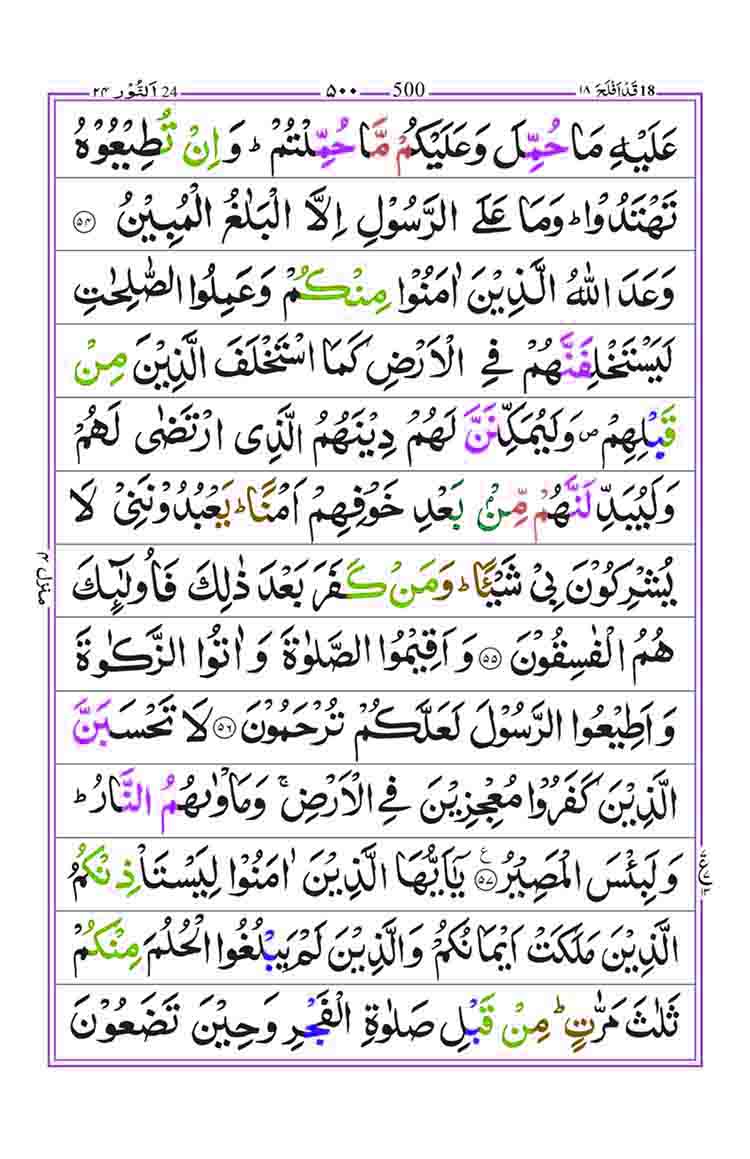 18 قَدْ اَفْلَحَ ۱۸ 500 ۵۰۰ 24 اَلنُّوْر ۲۴
عَلَيْهِ مَا حُمِّلَ وَعَلَيْكُمْ مَّا حُمِّلْتُمْ ؕ وَ اِنْ تُطِيْعُوْهُ
تَهْتَدُوْا ؕ وَمَا عَلَى الرَّسُوْلِ اِلَّا الْبَلٰغُ الْمُبِيْنُ ۵۴
وَعَدَ اللّٰهُ الَّذِيْنَ اٰمَنُوْا مِنْكُمْ وَعَمِلُوا الصّٰلِحٰتِ
لَيَسْتَخْلِفَنَّهُمْ فِي الْاَرْضِ كَمَا اسْتَخْلَفَ الَّذِيْنَ مِنْ
قَبْلِهِمْ ۪ وَلَيُمَكِّنَنَّ لَهُمْ دِيْنَهُمُ الَّذِى ارْتَضٰى لَهُمْ
وَلَيُبَدِّلَنَّهُمْ مِّنْۢ بَعْدِ خَوْفِهِمْ اَمْنًا ؕ يَعْبُدُوْنَنِىْ لَا
يُشْرِكُوْنَ بِىْ شَيْئًا ؕ وَمَنْ كَفَرَ بَعْدَ ذٰلِكَ فَاُولٰٓئِكَ
هُمُ الْفٰسِقُوْنَ ۵۵ وَ اَقِيْمُوا الصَّلٰوةَ وَ اٰتُوا الزَّكٰوةَ
وَ اَطِيْعُوا الرَّسُوْلَ لَعَلَّكُمْ تُرْحَمُوْنَ ۵۶ لَا تَحْسَبَنَّ
الَّذِيْنَ كَفَرُوْا مُعْجِزِيْنَ فِي الْاَرْضِ ۚ وَمَاْوٰىهُمُ النَّارُ ؕ
وَ لَبِئْسَ الْمَصِيْرُ ۵۷ ع يٰۤاَيُّهَا الَّذِيْنَ اٰمَنُوْا لِيَسْتَاْذِنْكُمُ
الَّذِيْنَ مَلَكَتْ اَيْمَانُكُمْ وَالَّذِيْنَ لَمْ يَبْلُغُوا الْحُلُمَ مِنْكُمْ
ثَلٰثَ مَرّٰتٍ ؕ مِنْ قَبْلِ صَلٰوةِ الْفَجْرِ وَحِيْنَ تَضَعُوْنَ
منزل ۴